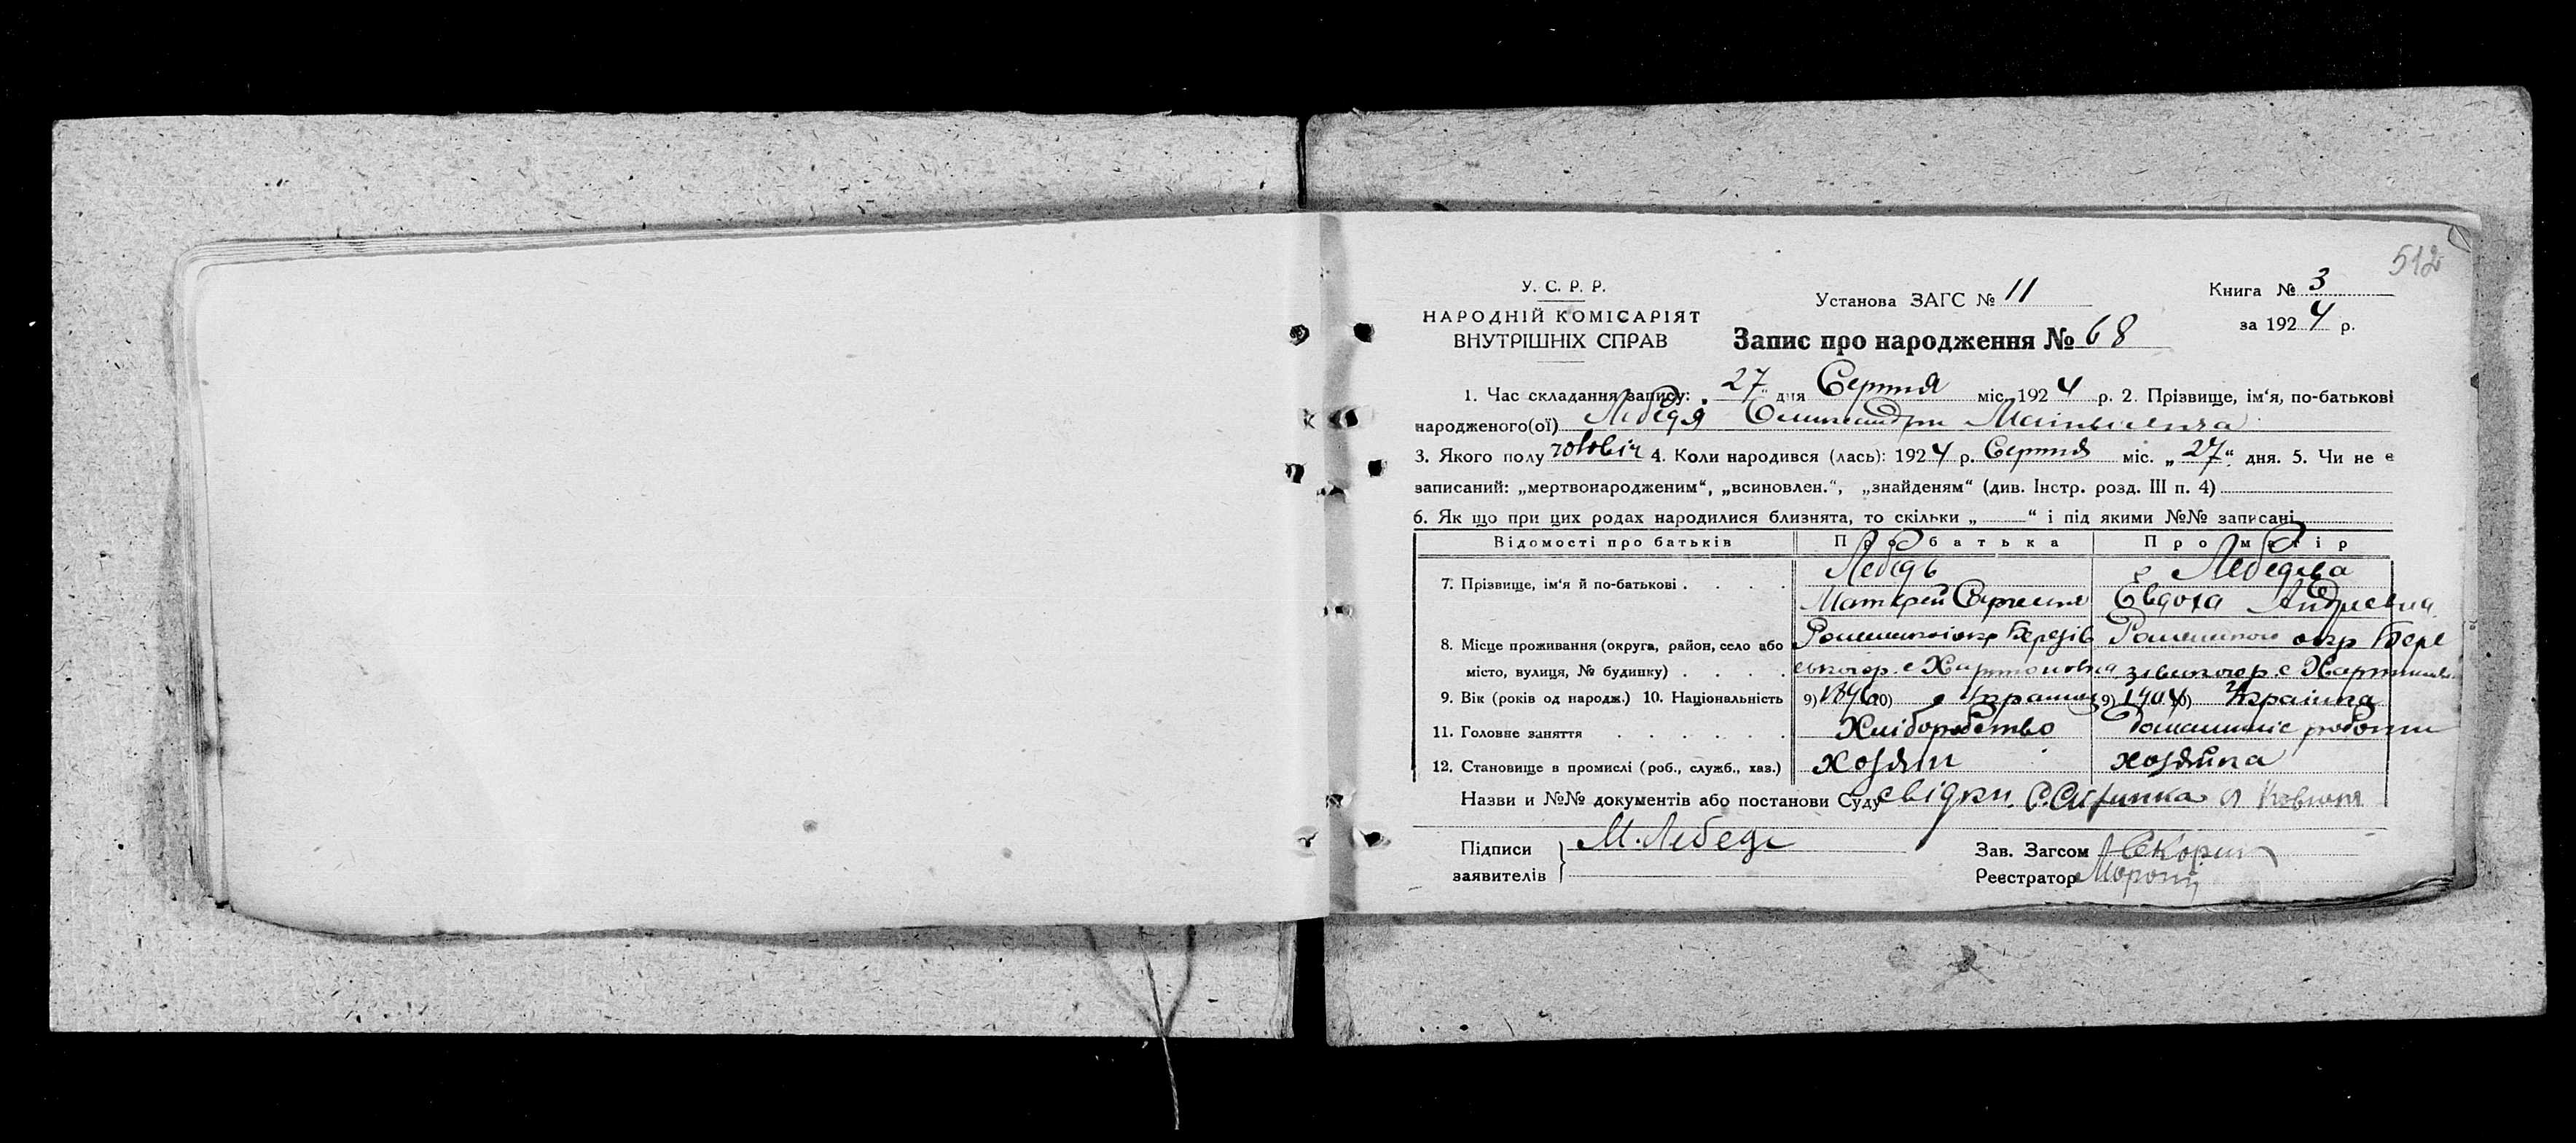 512
У. С. Р. Р.
НАРОДНІЙ КОМІСАРІЯТ
ВНУТРІШНІХ СПРАВ
Установа ЗАГС № 11
Книга № 3
за 1924 р.
Запис про народження № 68
1. Час складання запису: 27 дня Серпня міс. 1924 р. 2. Прізвище, ім'я, по-батькові
народженого(ої) Лебедя
3. Якого полу чоловіч 4. Коли народився (лась): 1924 р. Серпня міс. „27“ дня. 5. Чи не є
записаний: „мертвонародженим“, „всиновлен.“, „знайденям“ (див. Інстр. розд. III п. 4)
6. Як що при цих родах народилися близнята, то скільки „ “ і під якими №№ записані
Відомості про батьків Про батька Про матір
7. Прізвище, ім'я й по-батькові . . . . Лебедь Лебедева
Матвей Евдоха Андреевна
8. Місце проживання (округа, район, село або Березів окр Бере
місто, вулиця, № будинку) . . . . с с
9. Вік (років од народж.) 10. Національність 9) 1896 10) 9) 1904 10) Украінка
11. Головне заняття . . . . . . Хліборобство роботи
12. Становище в промислі (роб., служб., хаз.) хозяін хозяйка
Назви и №№ документів або постанови Суду свідки
Підписи М. Лебедь
заявителів
Зав. Загсом Скорик
Реєстратор